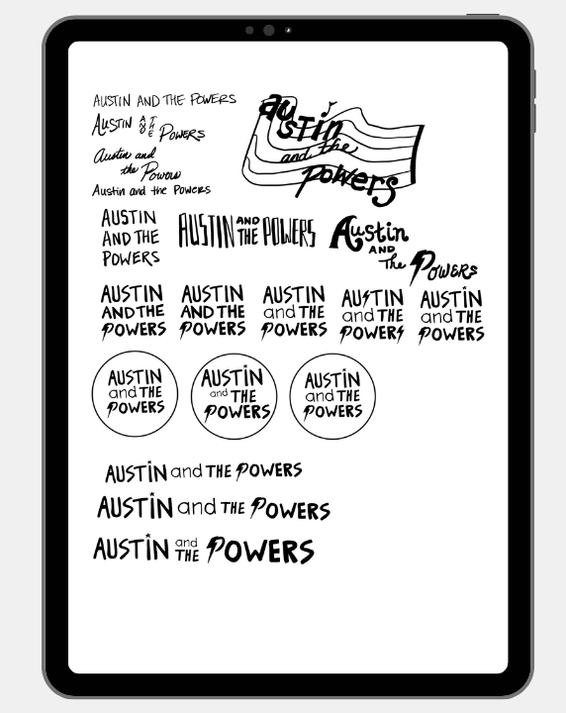 AUSTIN AND THE POWERS
AUSTIN AND THE POWERS
Austin and
the Powers
Austin and the Powers
austin
and the
powers
AUSTIN
AND THE
POWERS
AUSTIN AND THE POWERS
Austin
AND
the POWERS
AUSTIN
AND THE
POWERS
AUSTIN
AND THE
POWERS
AUSTIN
and THE
POWERS
AUSTIN
and THE
POWERS
AUSTiN
and THE
POWERS
AUSTIN
and THE
POWERS
AUSTiN
and THE
POWERS
AUSTiN
and THE
POWERS
AUSTiN and THE POWERS
AUSTiN and THE POWERS
AUSTiN and THE POWERS